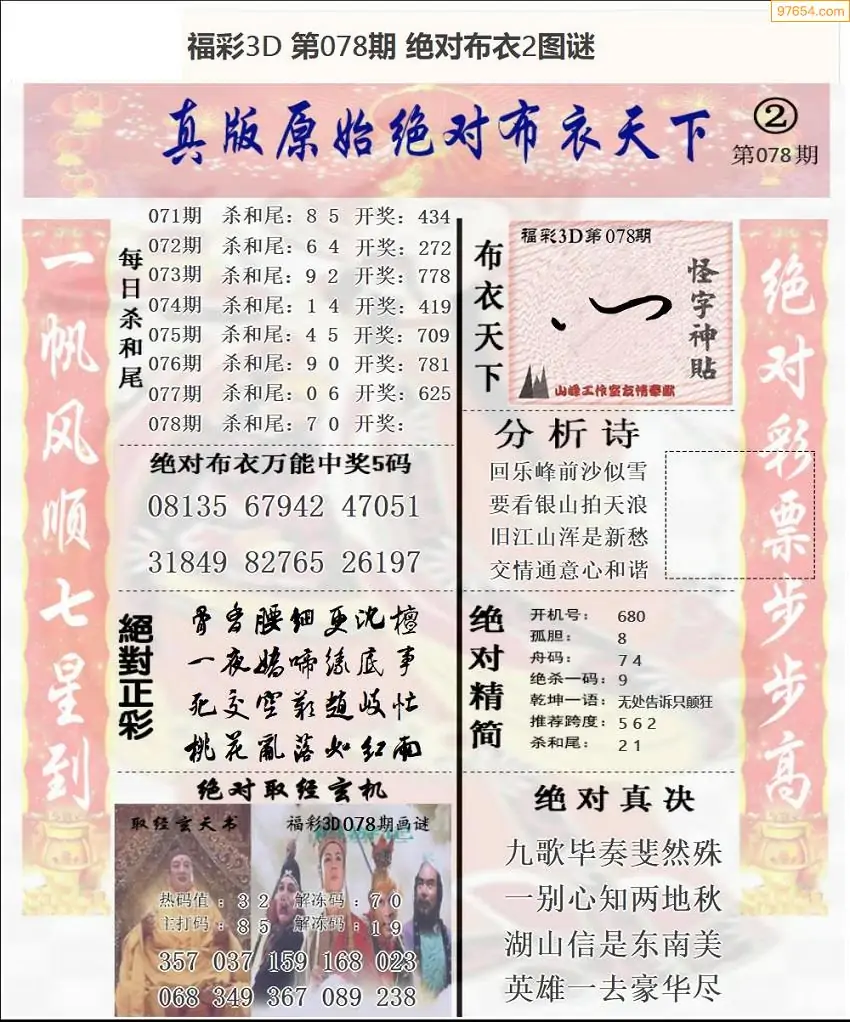 97654.com
福彩3D 第078期 绝对布衣2图谜
真版原始绝对布衣天下
②
第078期
一帆风顺七星到
每日杀和尾
071期 杀和尾：8 5 开奖：434
072期 杀和尾：6 4 开奖：272
073期 杀和尾：9 2 开奖：778
074期 杀和尾：1 4 开奖：419
075期 杀和尾：4 5 开奖：709
076期 杀和尾：9 0 开奖：781
077期 杀和尾：0 6 开奖：625
078期 杀和尾：7 0 开奖：
绝对布衣万能中奖5码
08135 67942 47051
31849 82765 26197
絕對正彩
骨香腰细更沈檀
一夜嬌啼缘底事
死交空歎趙岐忙
桃花亂落如红雨
绝对取经玄机
取经玄天书
福彩3D078期画谜
热码值：3 2 解冻码：7 0
主打码：8 5 解冻码：1 9
357 037 159 168 023
068 349 367 089 238
布衣天下
福彩3D第078期
怪字神貼
山峰工作室友情奉献
分析诗
回乐峰前沙似雪
要看银山拍天浪
旧江山浑是新愁
交情通意心和谐
绝对精简
开机号： 680
孤胆： 8
舟码： 7 4
绝杀一码：9
乾坤一语：无处告诉只颠狂
推荐跨度：5 6 2
杀和尾： 2 1
绝对真决
九歌毕奏斐然殊
一别心知两地秋
湖山信是东南美
英雄一去豪华尽
绝对彩票步步高